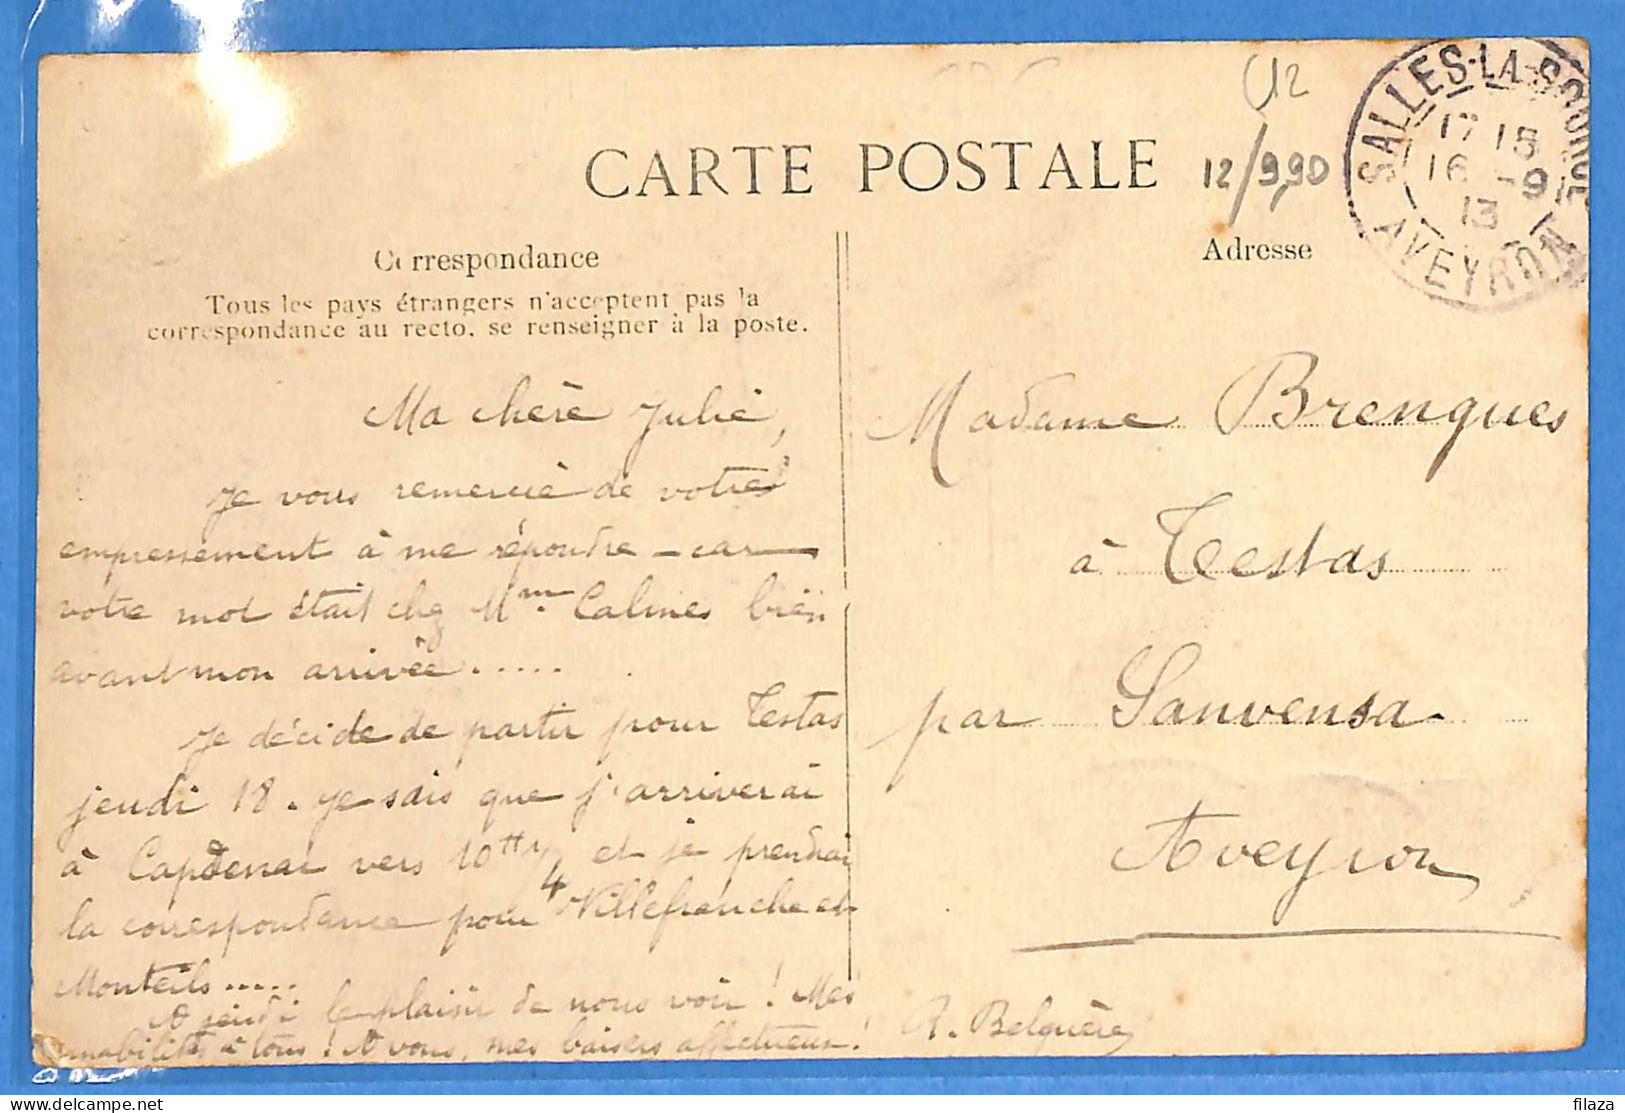 C12
CARTE POSTALE
12/9,90
SALLES-LA-SOURCE
17 15
16 -9
13
AVEYRON
Correspondance
Adresse
Tous les pays étrangers n'acceptent pas la
correspondance au recto, se renseigner à la poste.
Ma chère Julie,
Je vous remercie de votre
empressement à me répondre - car
votre mot était chez Mme Calmes bien
avant mon arrivée.....
Je décide de partir pour Testas
jeudi 18. Je sais que j'arriverai
à Capdenac vers 10h 1/4 et je prendrai
la correspondance pour Villefranche et
Monteils.....
A jeudi le plaisir de nous voir ! Mes
amabilités à tous ! A vous, mes baisers affectueux !
R. Belguère
Madame Brengues
à Testas
par Sanvensa
Aveyron
filaza